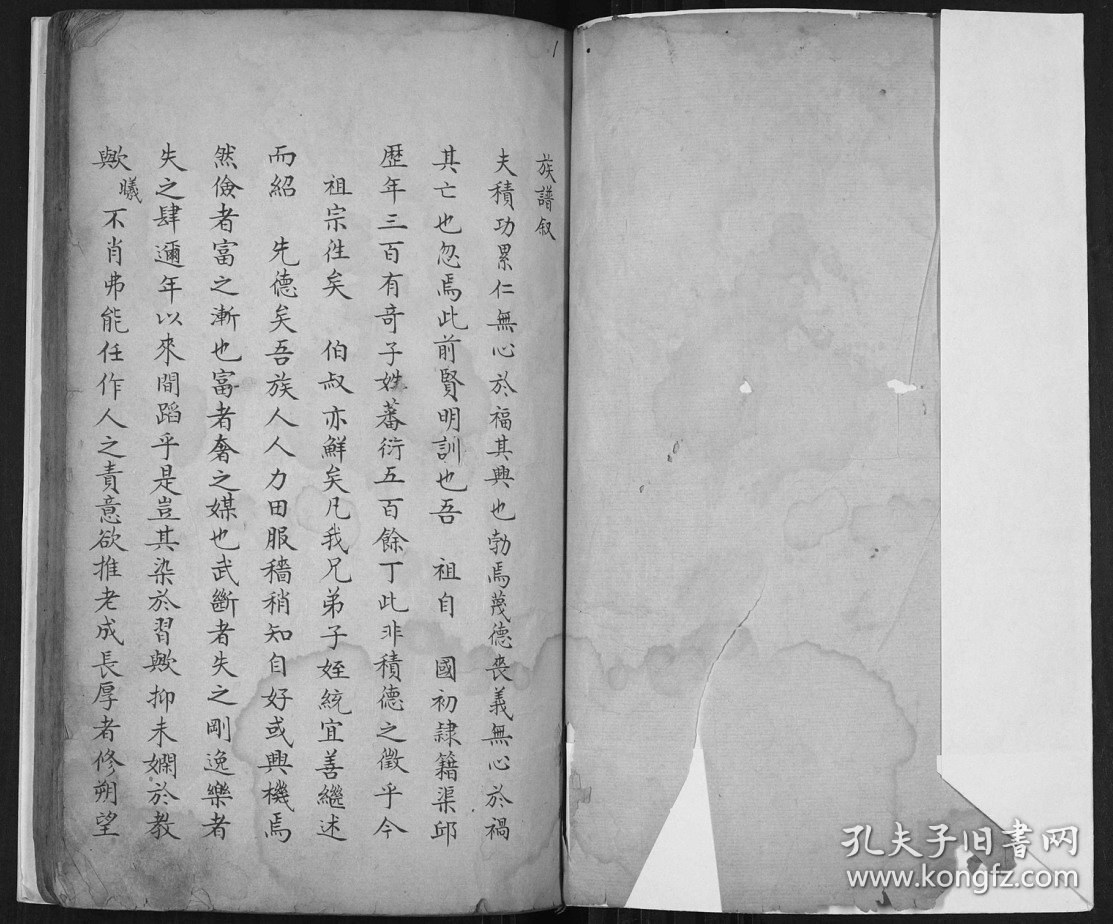 族譜叙
夫積功累仁無心於福其興也勃焉蔑德喪義無心於禍
其亡也忽焉此前賢明訓也吾　祖自　國初隸籍渠邱
歷年三百有奇子姓蕃衍五百餘丁此非積德之徵乎今
祖宗徃矣　伯叔亦鮮矣凡我兄弟子姪統宜善繼述
而紹　先德矣吾族人人力田服穡稍知自好或興機焉
然儉者富之漸也富者奢之媒也武斷者失之剛逸樂者
失之肆邇年以來間蹈乎是豈其染於習歟抑未嫻於教
歟曦不肖弗能任作人之責意欲推老成長厚者修朔望
1
孔夫子旧书网
www.kongfz.com